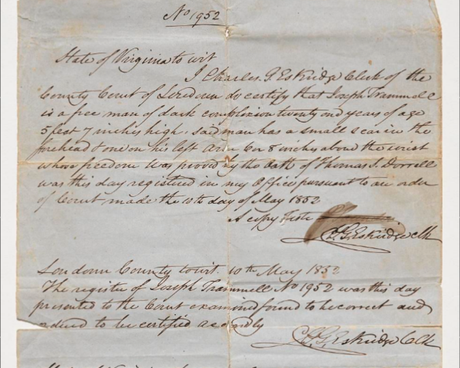 No 1952
State of Virginia to wit
I Charles G Eskridge Clerk of the
County Court of Loudoun do certify that Joseph Trammell
is a free man of dark complexion twenty one years of age
5 feet 7 inches high. Said man has a small scar in the
forehead & one on his left Arm 6 or 8 inches above the wrist
whose freedom was proved by the Oath of Thomas S Dorrell
was this day registered in my Office pursuant to an order
of Court made the 10th day of May 1852
A copy Teste
C. G. Eskridge Clk
Loudoun County to wit. 10th May 1852
The register of Joseph Trammell No 1952 was this day
presented to the Court examined found to be correct and
ordered to be certified accordingly
C. G. Eskridge Clk